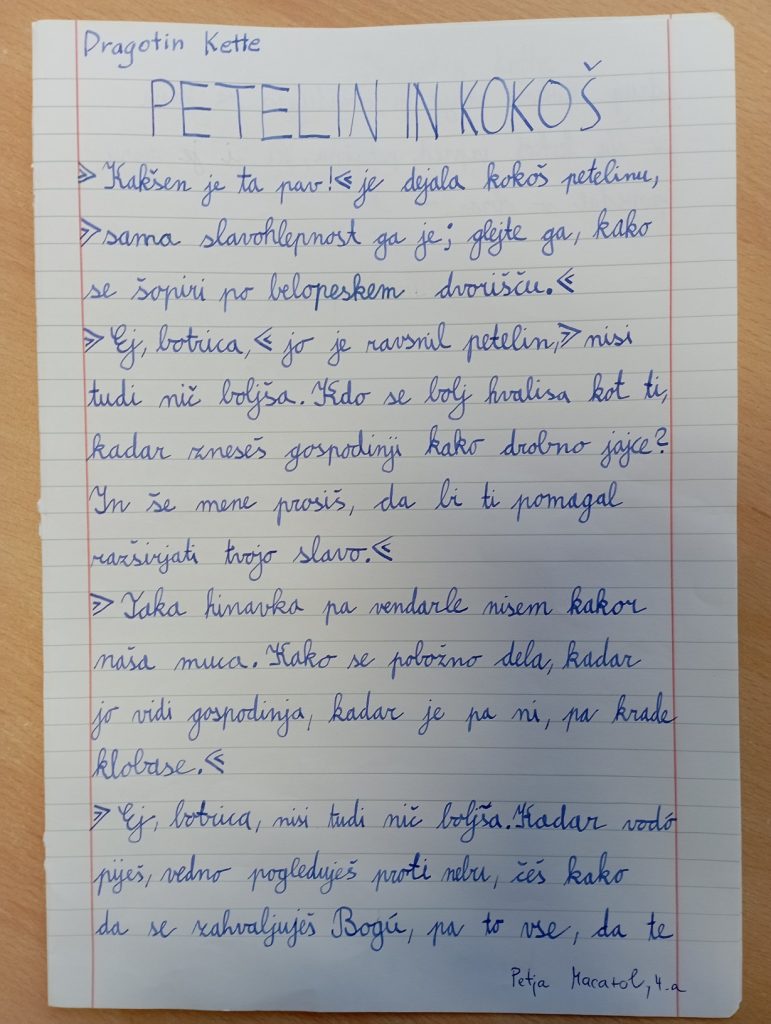 Dragotin Kette
PETELIN IN KOKOŠ
»Kakšen je ta pav!« je dejala kokoš petelinu,
»sama slavohlepnost ga je; glejte ga, kako
se šopiri po belopeskem dvorišču.«
»Ej, botrica,« jo je ravsnil petelin, »nisi
tudi nič boljša. Kdo se bolj hvalisa kot ti,
kadar zneseš gospodinji kako drobno jajce?
In še mene prosiš, da bi ti pomagal
razširjati tvojo slavo.«
»Taka hinavka pa vendarle nisem kakor
naša muca. Kako se pobožno dela, kadar
jo vidi gospodinja, kadar je pa ni, pa krade
klobase.«
»Ej, botrica, nisi tudi nič boljša. Kadar vodó
piješ, vedno pogleduješ proti nebu, češ kako
da se zahvaljuješ Bogú, pa to vse, da te
Petja Macarol, 4.a